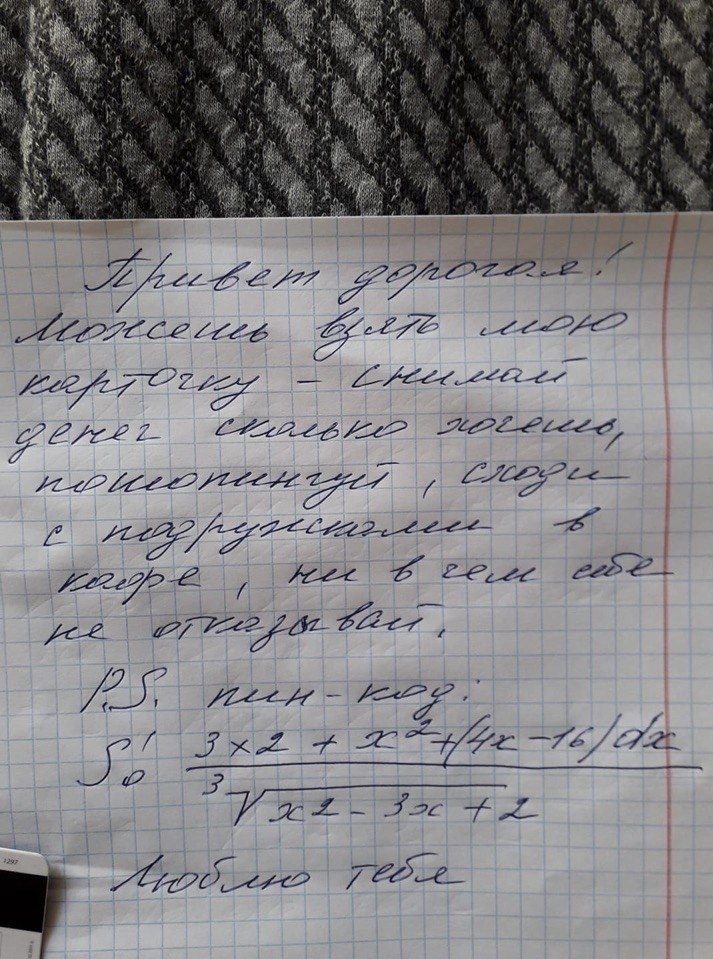 Привет дорогая!
Можешь взять мою
карточку - снимай
денег сколько хочешь,
пошопингуй, сходи
с подружками в
кафе, ни в чем себе
не отказывай.
P.S. пин-код:
∫₀¹ 3x2 + x² + (4x - 16) dx
∛x2 - 3x + 2
1297
Люблю тебя